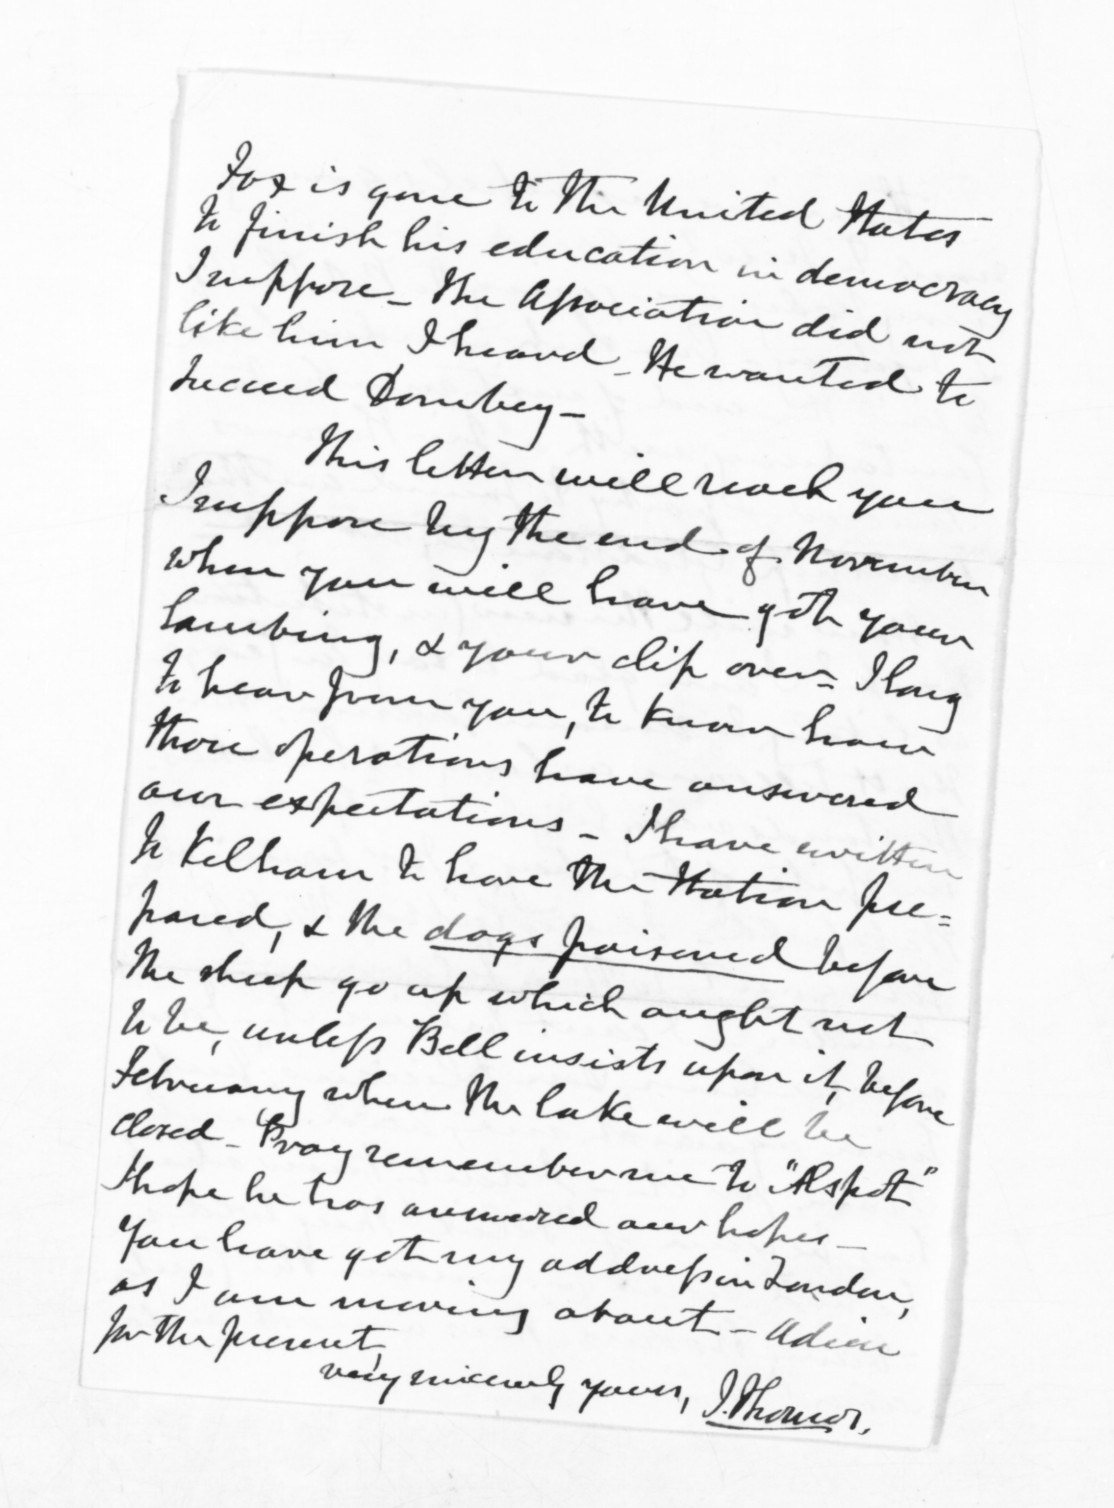 Fox is gone to the United States
to finish his education in democracy
I suppose – the Association did not
like him I heard – He wanted to
succeed Dombey –
This letter will reach you
I suppose by the end of November
when you will have got your
lambing, & your clip over – I long
to hear from you, to know how
those operations have answered
our expectations – I have written
to Kelham to have the Station pre=
pared, & the dogs poisoned before
the sheep go up which ought not
to be, unless Bell insists upon it, before
February when the lake will be
closed – Pray remember me to
I hope he has answered our hopes –
You have got my address in London,
as I am moving about – Adieu
for the present,
very sincerely yours, J. Thomas.